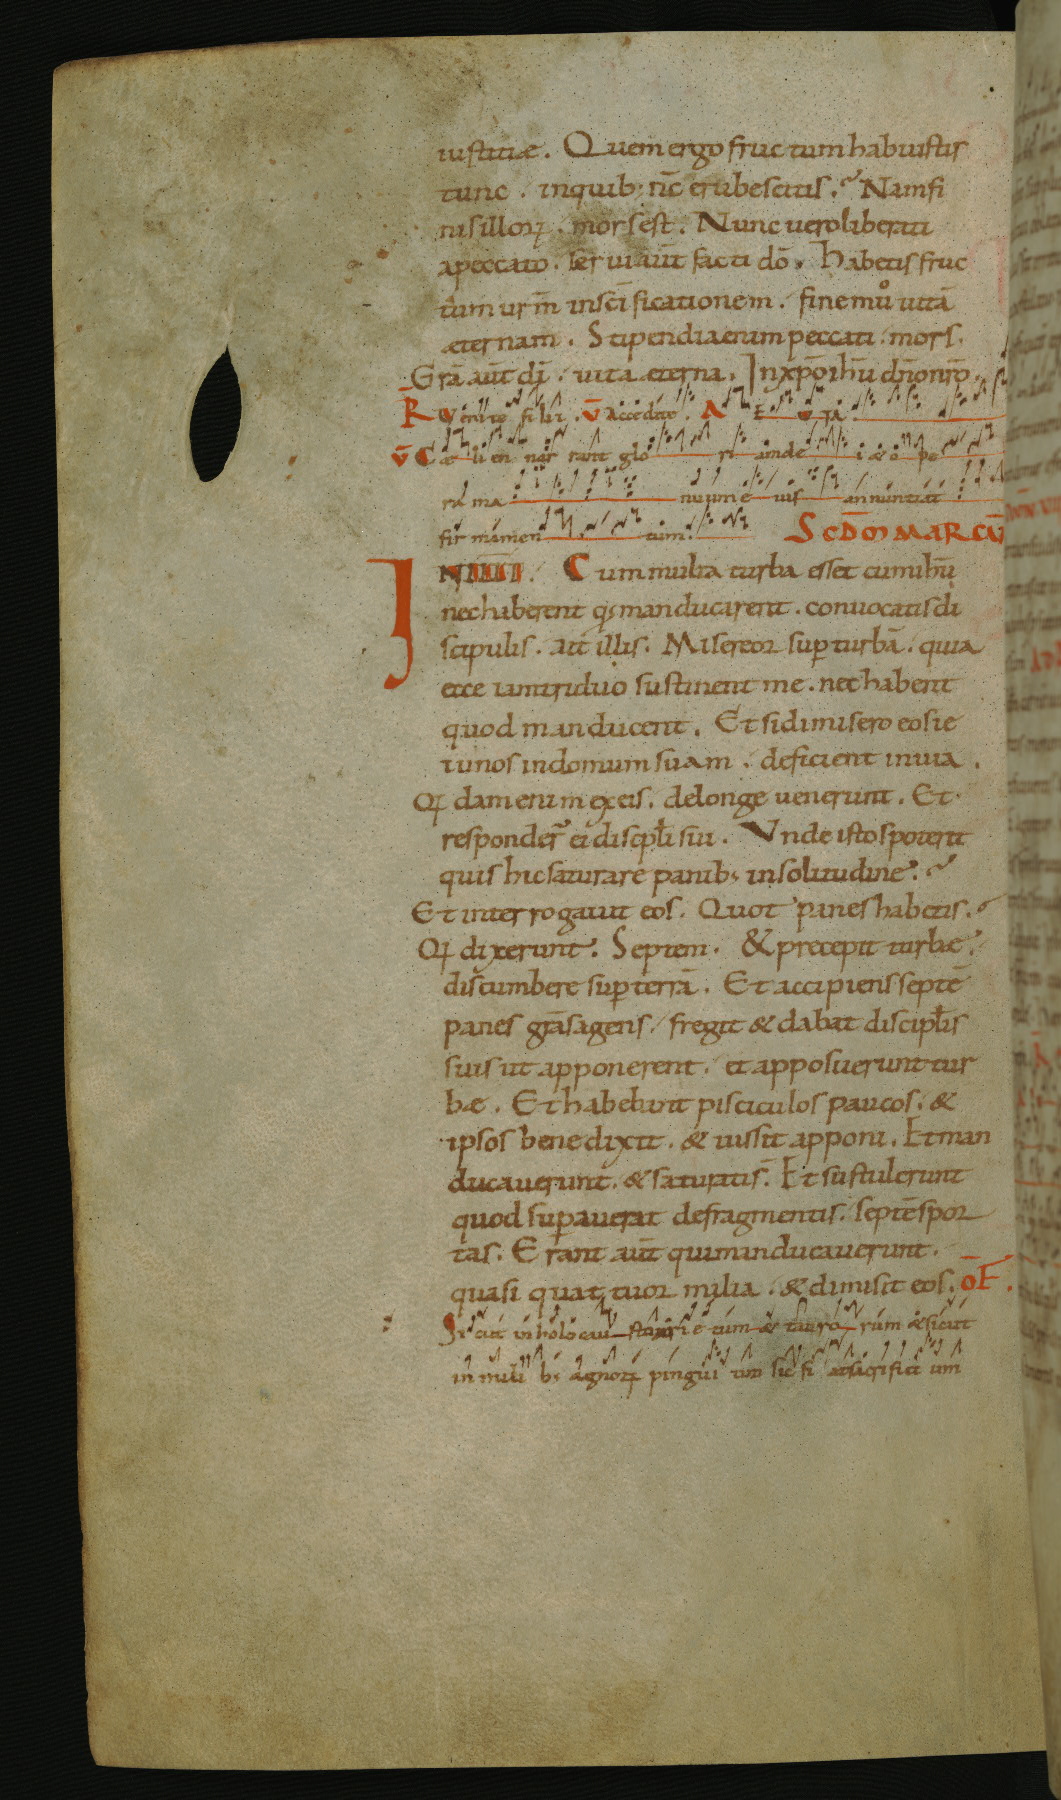 iustitiæ. Quem ergo fructum habuistis
tunc. in quib; nc̄ erubescitis. Nam fi
nis illoꝝ. mors est. Nunc uero liberati
a peccato. serui aūt facti dō. habetis fruc
tum urm̄ in sc̄ificationem. finem uº uitā
æternam. Stipendia enim peccati. mors.
Gr̄a aūt dī. uita æterna. In xp̄o ihū dn̄o nr̄o.
R̄ Venite filii. v̄ Accedite. A E V IA.
v̄ Cæli enarrant gloriam dei & ope
ra ma nuum eius annuntiat
fir mamen tum. Scdm MARCV̄
IN ILLI. Cum multa turba esset cum ihū
nec haberent qd manducarent. conuocatis di
scipulis. ait illis. Misereor sup turbā. quia
ecce iam triduo sustinent me. nec habent
quod manducent. Et si dimisero eos ie
iunos in domum suam. deficient in uia.
Qdam enim ex eis. de longe uenerunt. Et
responder̄ ei discipli sui. Vnde istos poterit
quis hic saturare panib; in solitudine.
Et interrogauit eos. Quot panes habetis.
Q dixerunt. Septem. & precepit turbæ
discumbere sup terrā. Et accipiens septē
panes gr̄as agens. fregit & dabat discipłis
suis ut apponerent. et apposuerunt tur
bæ. Et habebant pisciculos paucos. &
ipsos benedixit. & iussit apponi. Et man
ducauerunt. & saturatis. Et sustulerunt
quod supauerat de fragmentis. septē spor
tas. Erant aūt qui manducauerunt.
quasi quattuor milia. & dimisit eos. OF.
Sicut in holocau stum arie tum & tauro rum & sicut
in mili b; agnoꝝ pingui um sic fi at sacrifici um